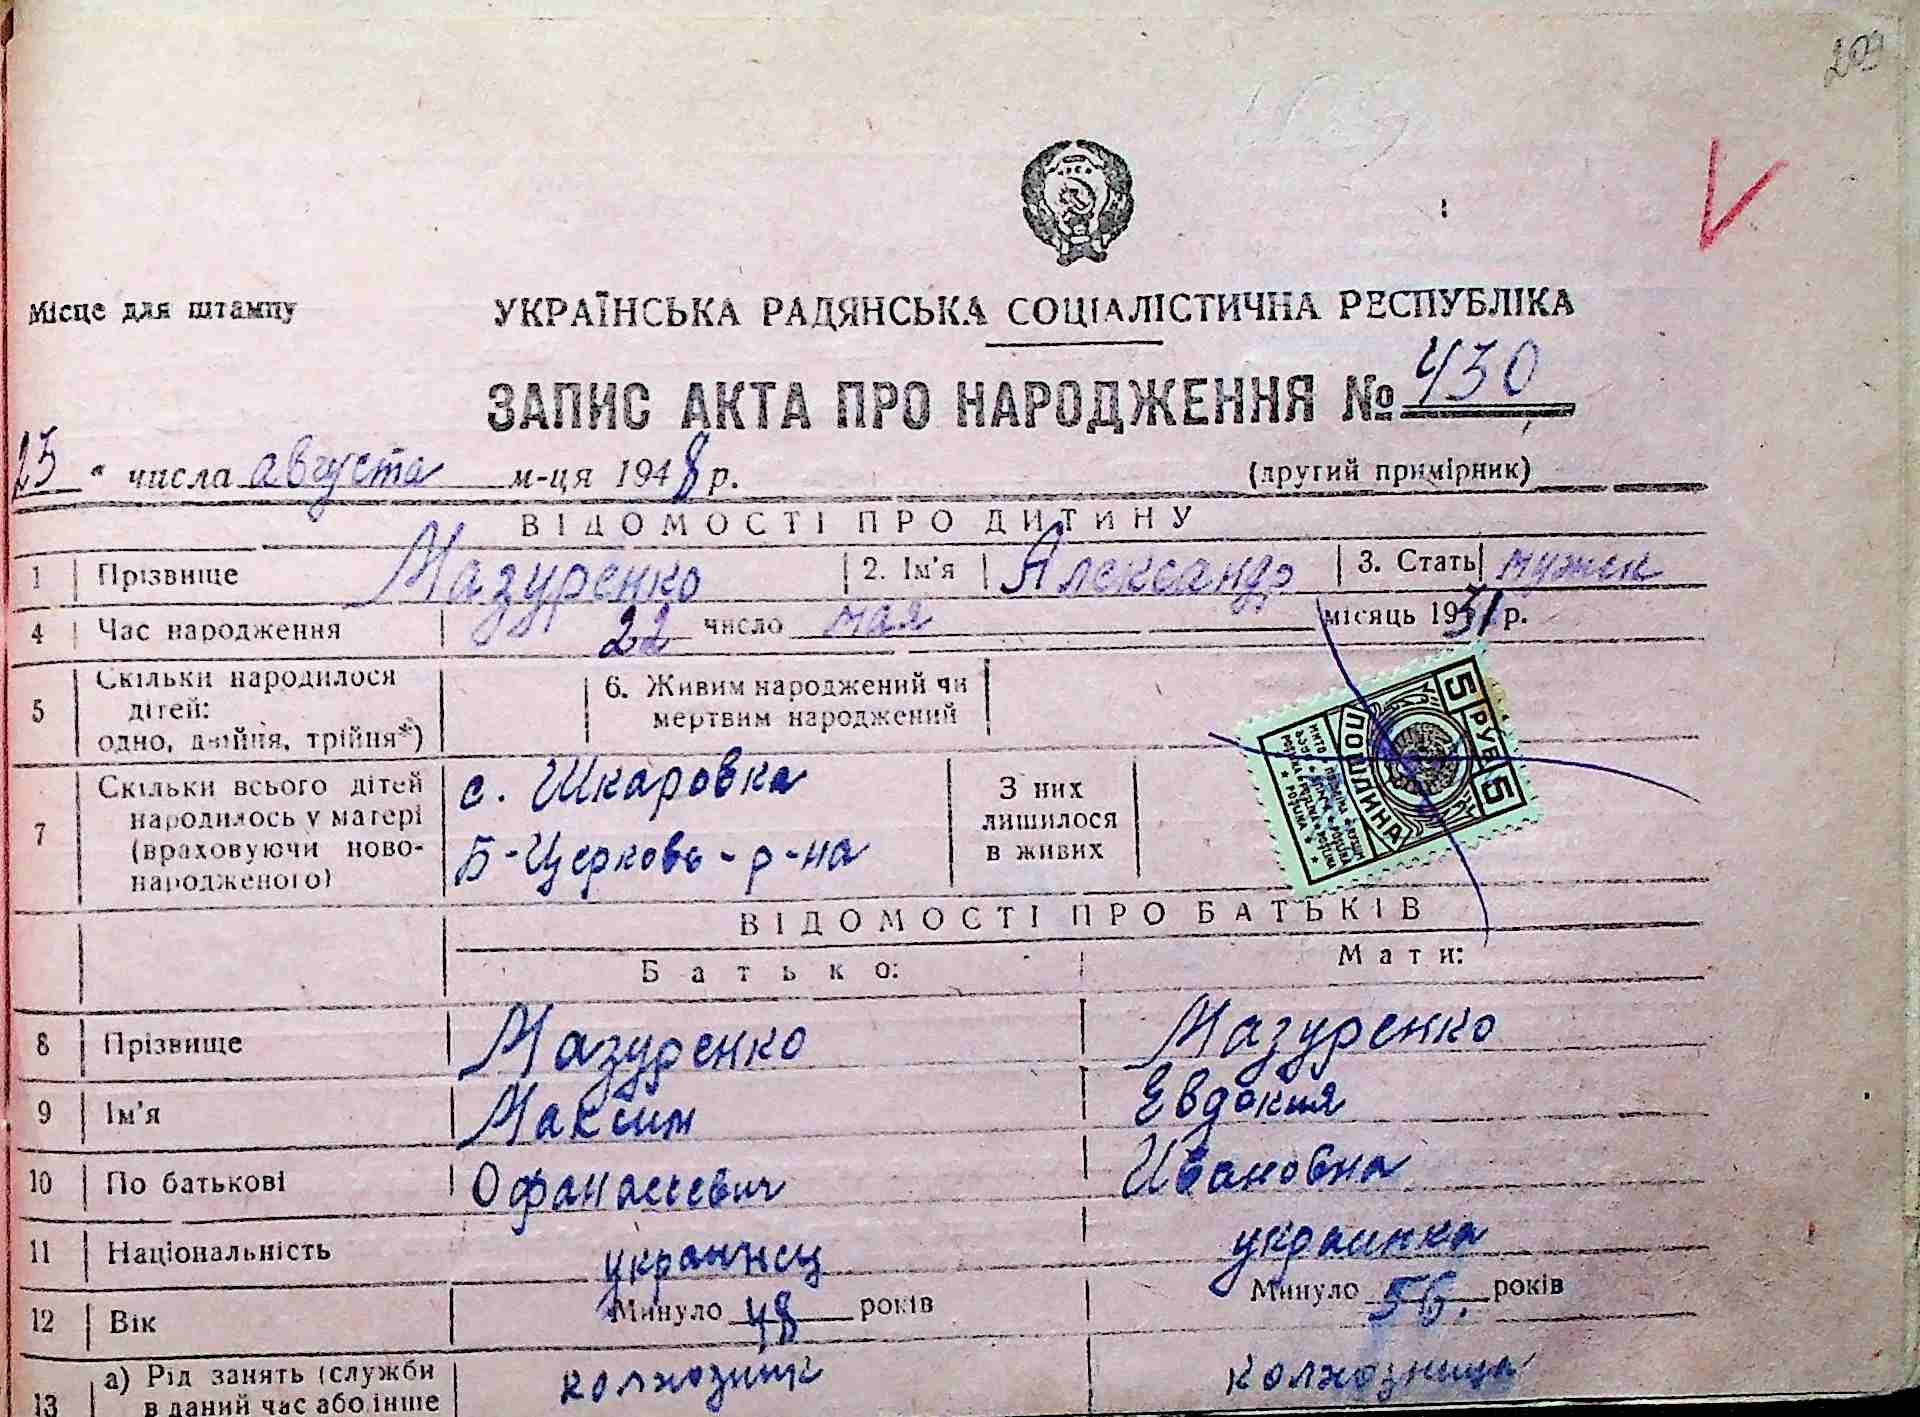 209
Місце для штампу
УКРАЇНСЬКА РАДЯНСЬКА СОЦІАЛІСТИЧНА РЕСПУБЛІКА
ЗАПИС АКТА ПРО НАРОДЖЕННЯ № 430
25 " числа августа м-ця 1948 р. (другий примірник)
ВІДОМОСТІ ПРО ДИТИНУ
1 Прізвище Мазуренко 2. Ім'я Александр 3. Стать мужск
4 Час народження 22 число мая місяць 1931 р.
5 Скільки народилося дітей: одно, двійня, трійня*) 6. Живим народжений чи мертвим народжений
7 Скільки всього дітей народилось у матері (враховуючи новонародженого) с. Шкаровка Б-Церковь-р-на З них лишилося в живих
5 РУБ 5
ПОШЛИНА
ВІДОМОСТІ ПРО БАТЬКІВ
Батько: Мати:
8 Прізвище Мазуренко Мазуренко
9 Ім'я Максим Евдокия
10 По батькові Офанасевич Ивановна
11 Національність украинец украинка
12 Вік Минуло 48 років Минуло 56. років
13 а) Рід занять (служби в даний час або інше колхозник колхозница